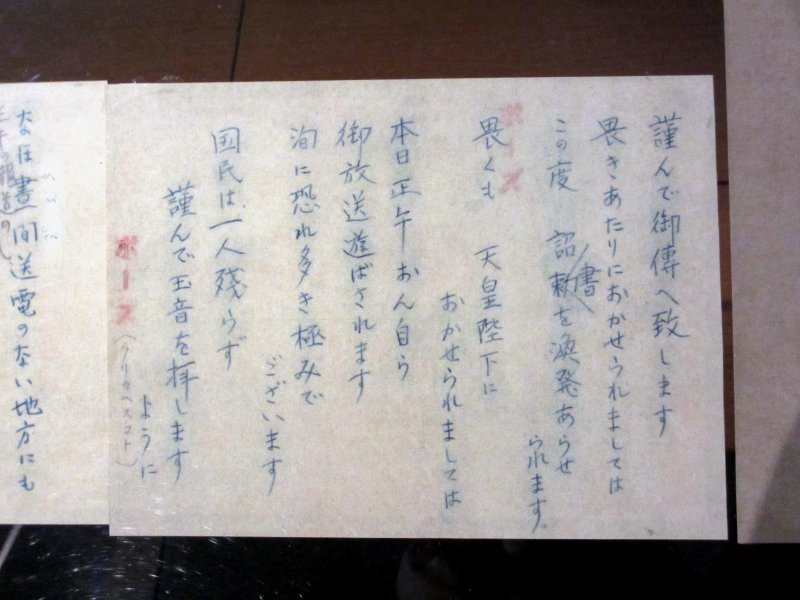 謹んで御傳へ致します
畏きあたりにおかせられましては
この度 詔書を渙発あらせ
られます。
ポーズ
畏くも 天皇陛下に
おかせられましては
本日正午おん自ら
御放送遊ばされます
洵に恐れ多き極みで
ございます
国民は、一人残らず
謹んで玉音を拝します
ように
ポース
(クリカヘスコト)
なほ晝間送電のない地方にも
正午の報道の